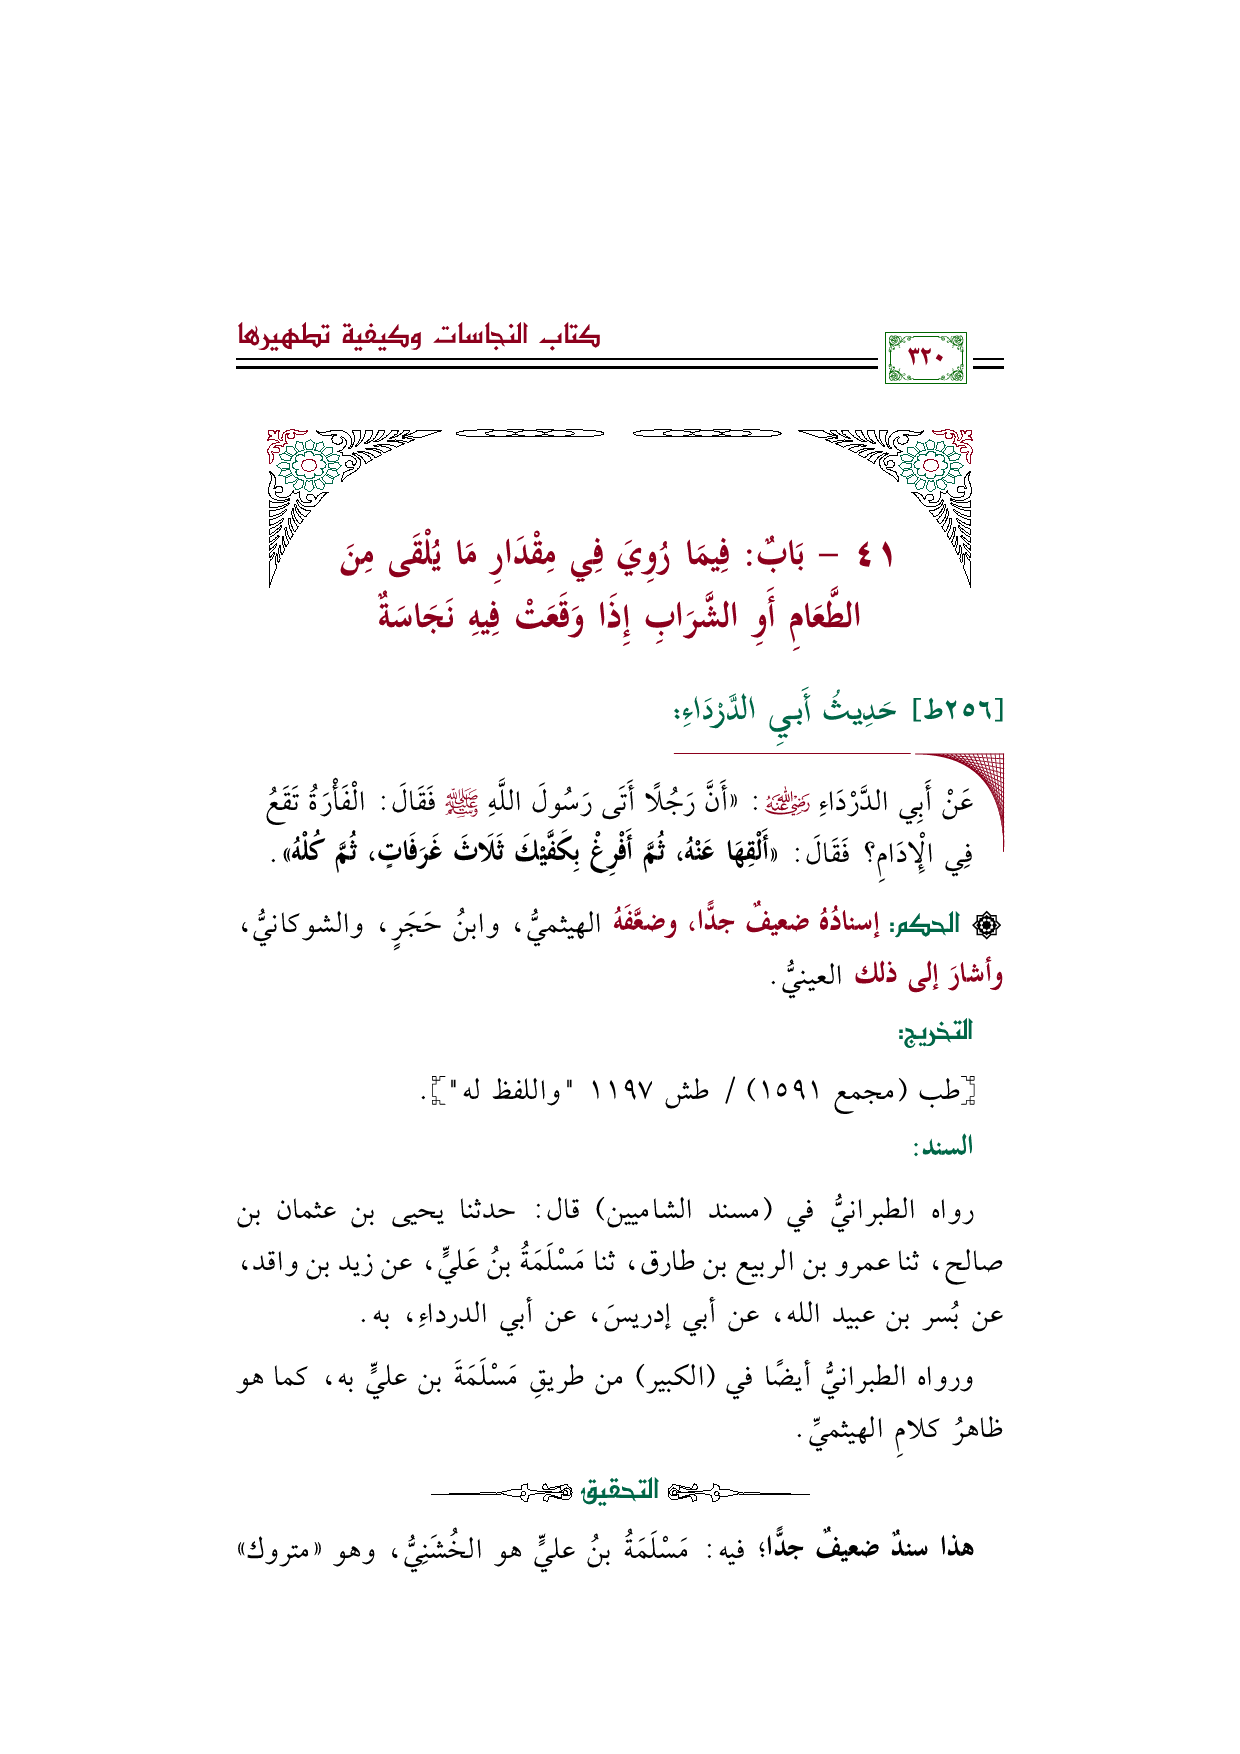 كتاب النجاسات وكيفية تطهيرها
٣٢٠
٤١ - بَابٌ: فِيمَا رُوِيَ فِي مِقْدَارِ مَا يُلْقَى مِنَ
الطَّعَامِ أَوِ الشَّرَابِ إِذَا وَقَعَتْ فِيهِ نَجَاسَةٌ
[٢٥٦ط] حَدِيثُ أَبِي الدَّرْدَاءِ:
عَنْ أَبِي الدَّرْدَاءِ رضي الله عنه : «أَنَّ رَجُلًا أَتَى رَسُولَ اللَّهِ ﷺ فَقَالَ: الْفَأْرَةُ تَقَعُ
فِي الْإِدَامِ؟ فَقَالَ: «أَلْقِهَا عَنْهُ، ثُمَّ أَفْرِغْ بِكَفَّيْكَ ثَلَاثَ غَرَفَاتٍ، ثُمَّ كُلْهُ».
الحكم: إسنادُهُ ضعيفٌ جدًّا، وضعَّفَهُ الهيثميُّ، وابنُ حَجَرٍ، والشوكانيُّ،
وأشارَ إلى ذلك العينيُّ.
التخريج:
[طب (مجمع ١٥٩١) / طش ١١٩٧ "واللفظ له"].
السند:
رواه الطبرانيُّ في (مسند الشاميين) قال: حدثنا يحيى بن عثمان بن
صالح، ثنا عمرو بن الربيع بن طارق، ثنا مَسْلَمَةُ بنُ عَليٍّ، عن زيد بن واقد،
عن بُسر بن عبيد الله، عن أبي إدريسَ، عن أبي الدرداءِ، به.
ورواه الطبرانيُّ أيضًا في (الكبير) من طريقِ مَسْلَمَةَ بن عليٍّ به، كما هو
ظاهرُ كلامِ الهيثميِّ.
التحقيق
هذا سندٌ ضعيفٌ جدًّا؛ فيه: مَسْلَمَةُ بنُ عليٍّ هو الخُشَنِيُّ، وهو «متروك»